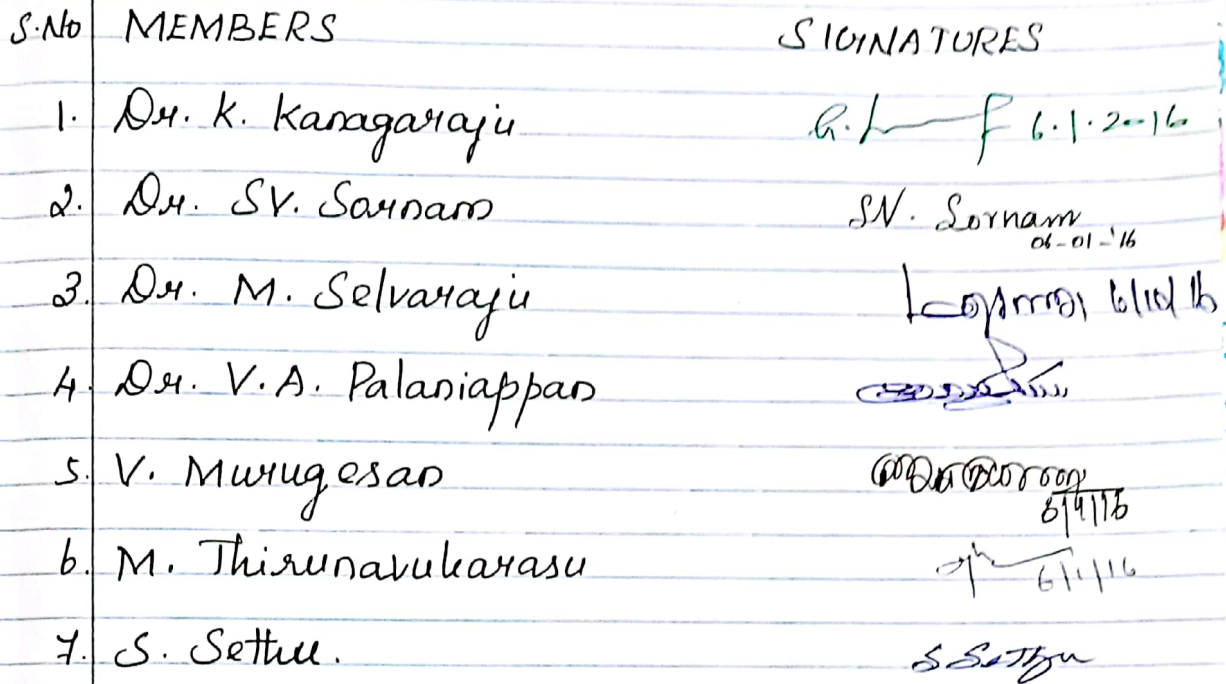 S.No MEMBERS SIGNATURES
1. Dr. K. Kanagaraju 6.1.2016
2. Dr. SV. Sornam SN. Sornam
06-01-'16
3. Dr. M. Selvaraju
4. Dr. V.A. Palaniappan
5. V. Murugesan
6. M. Thirunavukarasu 6/1/16
7. S. Sethu. S Sethu